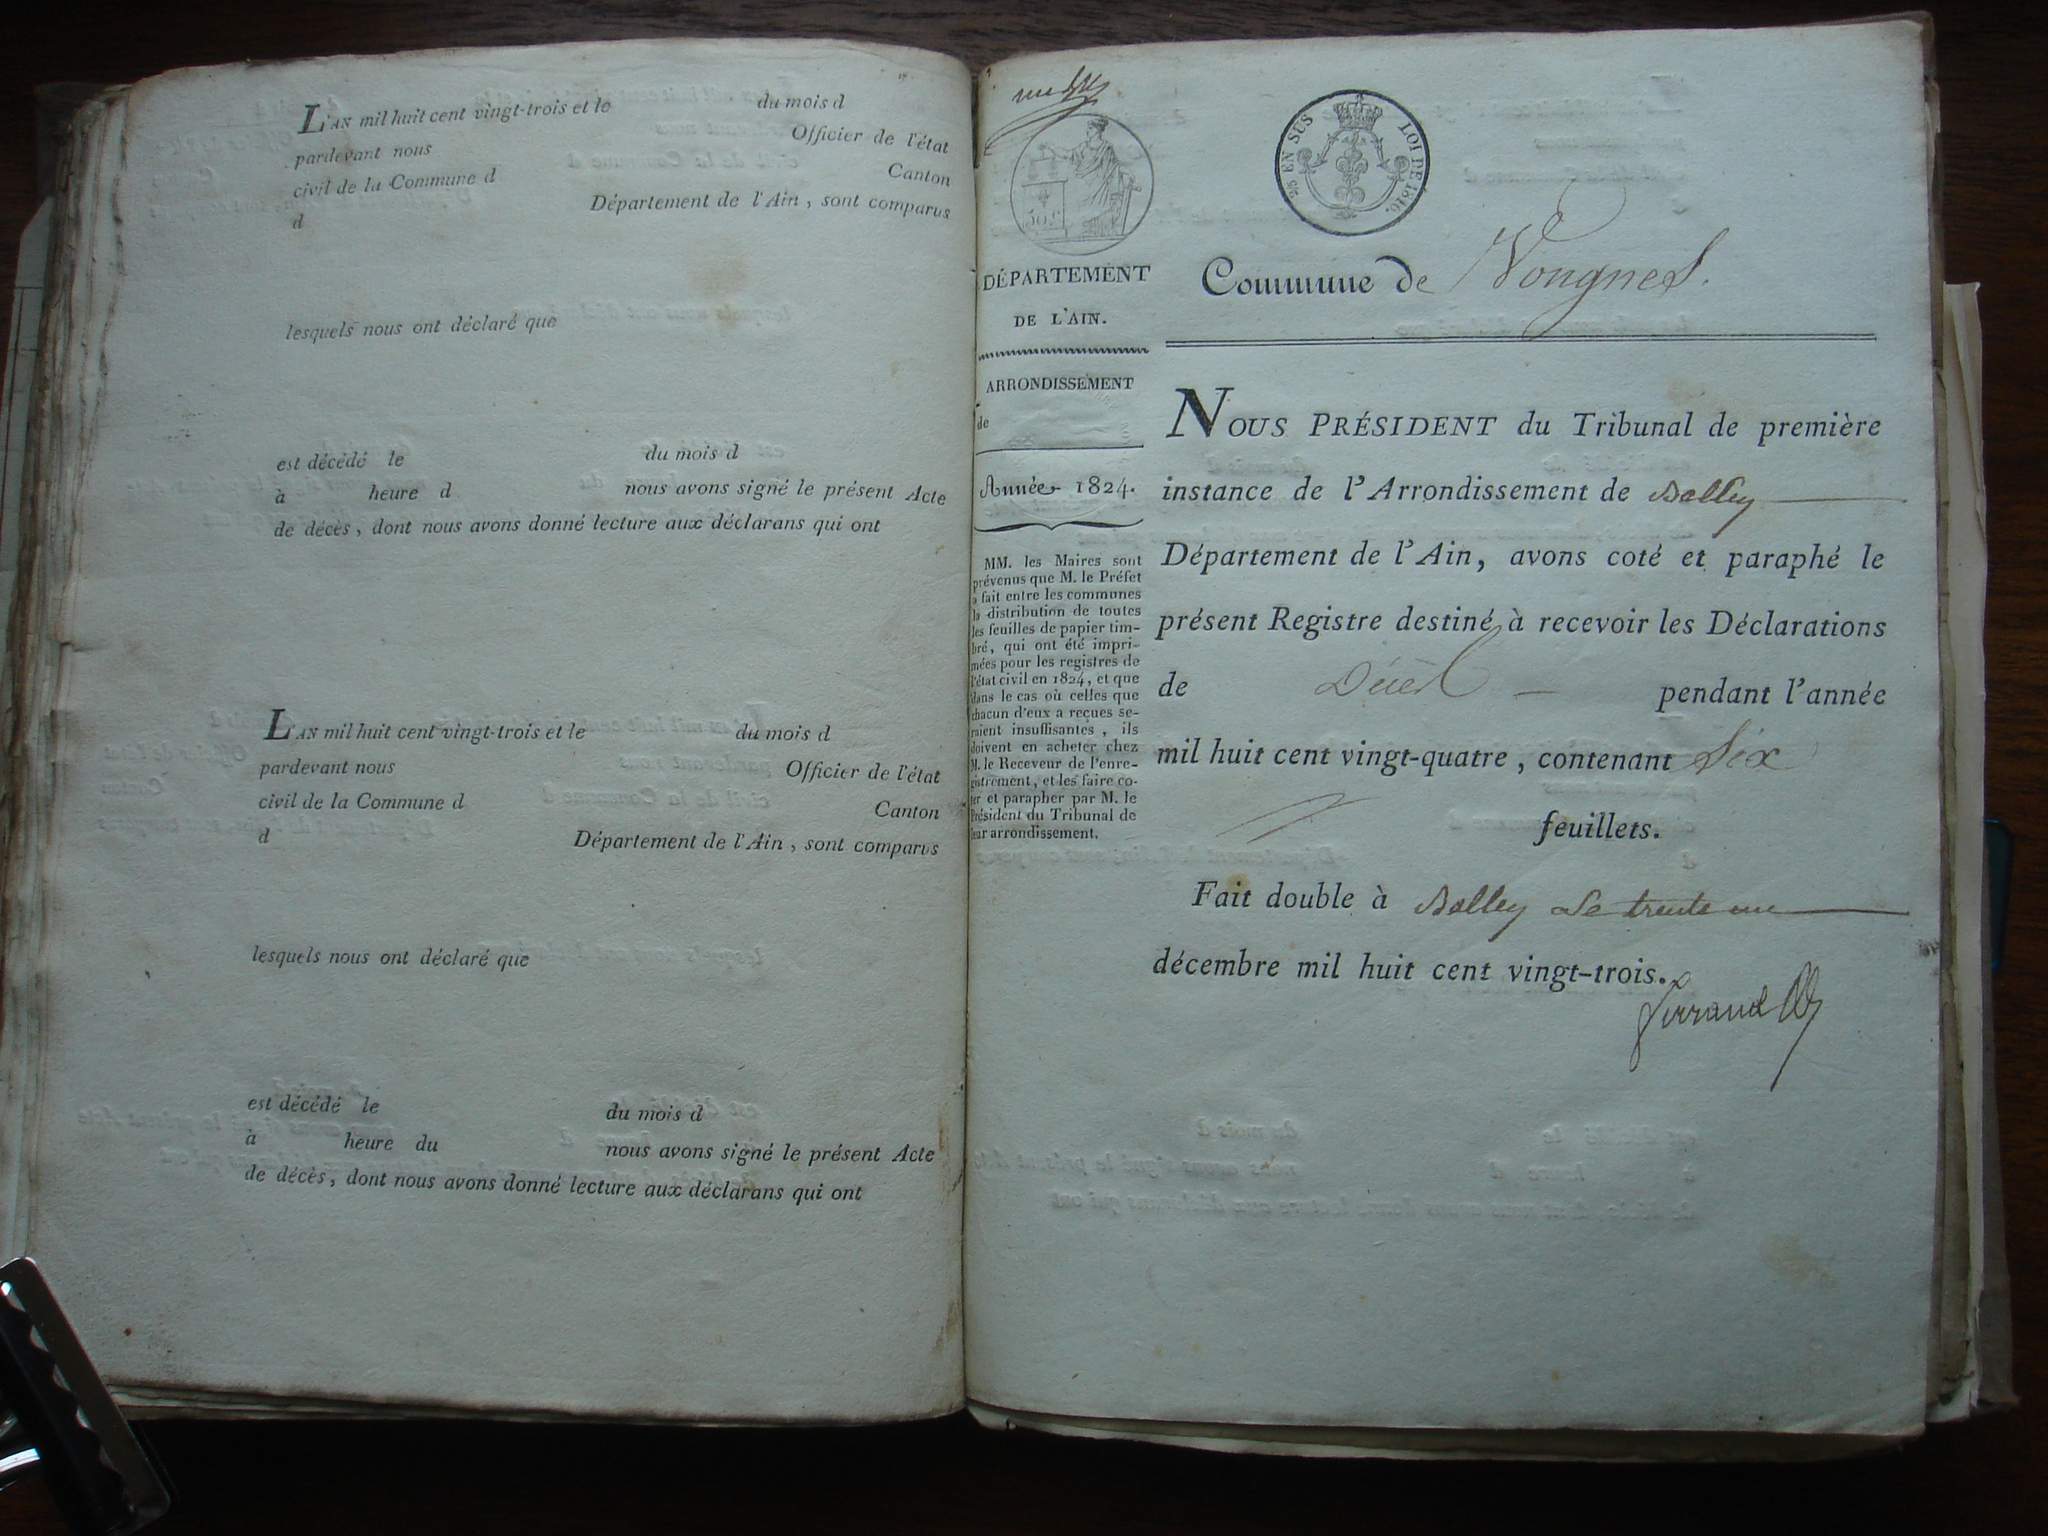 L'AN mil huit cent vingt-trois et le du mois d
pardevant nous Officier de l'état
civil de la Commune d Canton
d Département de l'Ain, sont comparus
lesquels nous ont déclaré que
est décédé le du mois d
à heure d nous avons signé le présent Acte
de décès, dont nous avons donné lecture aux déclarans qui ont
L'AN mil huit cent vingt-trois et le du mois d
pardevant nous Officier de l'état
civil de la Commune d Canton
d Département de l'Ain, sont comparus
lesquels nous ont déclaré que
est décédé le du mois d
à heure du nous avons signé le présent Acte
de décès, dont nous avons donné lecture aux déclarans qui ont
EN SUS LOI DE 1816.
DÉPARTEMENT
DE L'AIN.
ARRONDISSEMENT
de
Année 1824.
MM. les Maires sont
prévenus que M. le Préfet
a fait entre les communes
la distribution de toutes
les feuilles de papier tim-
bré, qui ont été impri-
mées pour les registres de
l'état civil en 1824, et que
dans le cas où celles que
chacun d'eux a reçues se-
raient insuffisantes, ils
doivent en acheter chez
M. le Receveur de l'enre-
gistrement, et les faire co-
ter et parapher par M. le
Président du Tribunal de
leur arrondissement.
Commune de Vongnes.
NOUS PRÉSIDENT du Tribunal de première
instance de l'Arrondissement de Belley
Département de l'Ain, avons coté et paraphé le
présent Registre destiné à recevoir les Déclarations
de Décès pendant l'année
mil huit cent vingt-quatre, contenant Six
feuillets.
Fait double à Belley Le trente un
décembre mil huit cent vingt-trois.